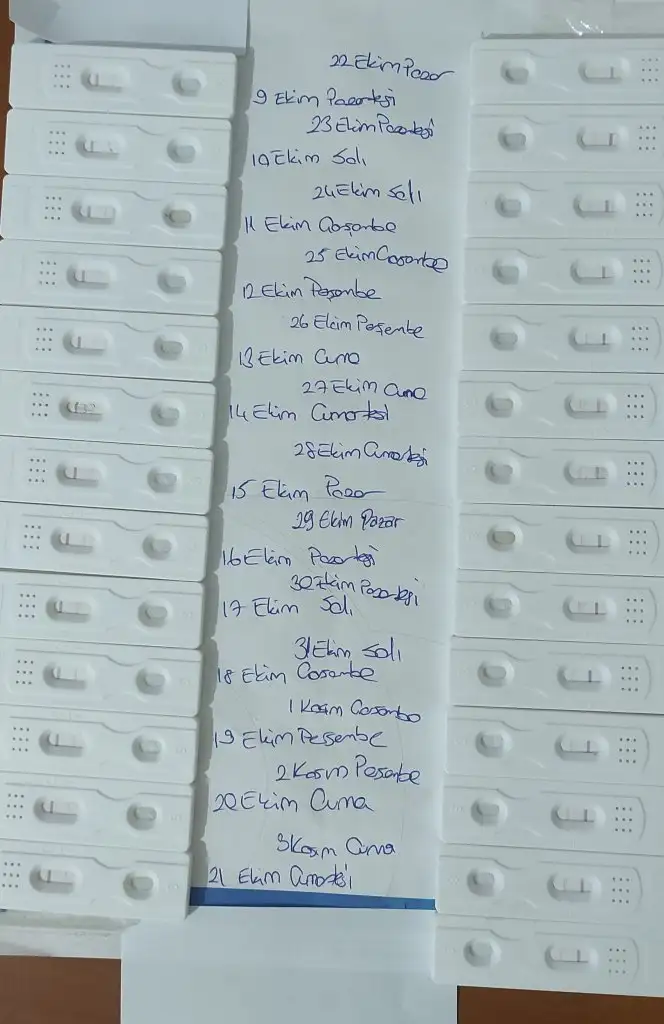 22 Ekim Pazar
9 Ekim Pazartesi
23 Ekim Pazartesi
10 Ekim Salı
24 Ekim Salı
11 Ekim Çarşanbe
25 Ekim Carsanbe
12 Ekim Perşenbe
26 Ekim Perşenbe
13 Ekim Cuma
27 Ekim Cuma
14 Ekim Cumartesi
28 Ekim Cumartesi
15 Ekim Pazar
29 Ekim Pazar
16 Ekim Pazartesi
30 Ekim Pazartesi
17 Ekim Salı
31 Ekim Salı
18 Ekim Carsanbe
1 Kasım Carsanba
19 Ekim Perşenbe
2 Kasım Perşenbe
20 Ekim Cuma
3 Kasım Cuma
21 Ekim Cumartesi